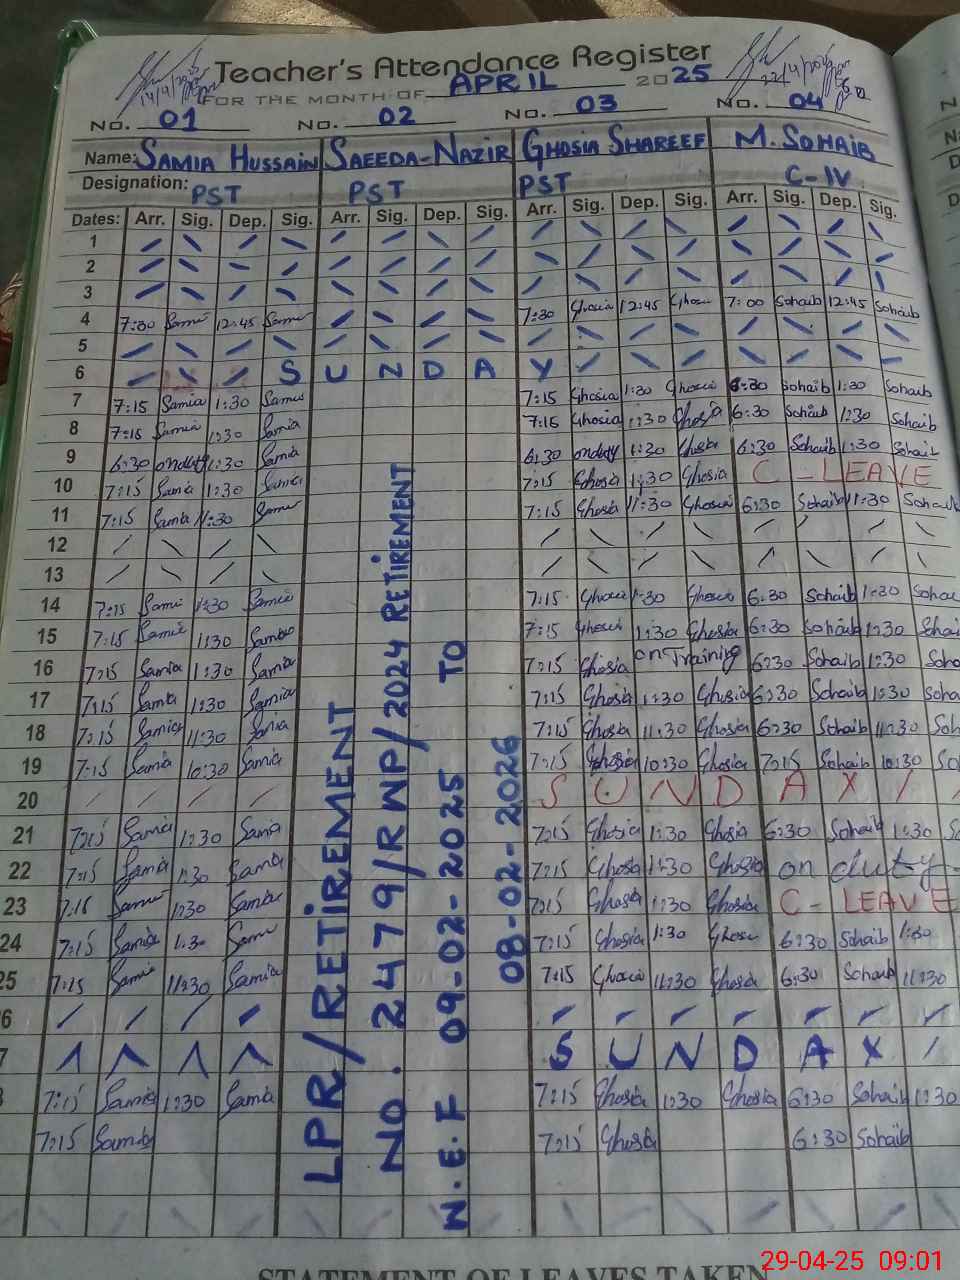 Teacher's Attendance Register
FOR THE MONTH OF APRIL 2025
14/4/2025
22/4/2025
No. 01 No. 02 No. 03 No. 04
Name: SAMIA HUSSAIN SAEEDA-NAZIR GHOSIA SHAREEF M. SOHAIB
Designation: PST PST PST C-IV
Dates: Arr. Sig. Dep. Sig. Arr. Sig. Dep. Sig. Arr. Sig. Dep. Sig. Arr. Sig. Dep. Sig.
1
2
3
4 7:30 Samia 12:45 Samia 7:30 Ghosia 12:45 Ghosia 7:00 Sohaib 12:45 Sohaib
5
6 S U N D A Y
7 7:15 Samia 1:30 Samia 7:15 Ghosia 1:30 Ghosia 6:30 Sohaib 1:30 Sohaib
8 7:15 Samia 1:30 Samia 7:15 Ghosia 1:30 Ghosia 6:30 Sohaib 1:30 Sohaib
9 6:30 onduty 1:30 Samia 6:30 onduty 1:30 Ghosia 6:30 Sohaib 1:30 Sohaib
10 7:15 Samia 1:30 Samia 7:15 Ghosia 1:30 Ghosia C - LEAVE
11 7:15 Samia 11:30 Samia 7:15 Ghosia 11:30 Ghosia 6:30 Sohaib 11:30 Sohaib
12
13
14 7:15 Samia 1:30 Samia 7:15 Ghosia 1:30 Ghosia 6:30 Sohaib 1:30 Sohai
15 7:15 Samia 1:30 Samia 7:15 Ghosia 1:30 Ghosia 6:30 Sohaib 1:30 Sohai
16 7:15 Samia 1:30 Samia 7:15 Ghosia on Training 6:30 Sohaib 1:30 Soha
17 7:15 Samia 1:30 Samia 7:15 Ghosia 1:30 Ghosia 6:30 Sohaib 1:30 Soha
18 7:15 Samia 11:30 Samia 7:15 Ghosia 11:30 Ghosia 6:30 Sohaib 11:30 Soh
19 7:15 Samia 10:30 Samia 7:15 Ghosia 10:30 Ghosia 7:15 Sohaib 10:30 So
20 S U N D A Y
21 7:15 Samia 1:30 Samia 7:15 Ghosia 1:30 Ghosia 6:30 Sohaib 1:30 S
22 7:15 Samia 1:30 Samia 7:15 Ghosia 1:30 Ghosia on duty
23 7:15 Samia 1:30 Samia 7:15 Ghosia 1:30 Ghosia C - LEAVE
24 7:15 Samia 1:30 Samia 7:15 Ghosia 1:30 Ghosia 6:30 Sohaib 1:30
25 7:15 Samia 11:30 Samia 7:15 Ghosia 11:30 Ghosia 6:30 Sohaib 11:30
6
7 S U N D A Y
8 7:15 Samia 1:30 Samia 7:15 Ghosia 1:30 Ghosia 6:30 Sohaib 1:30
7:15 Samia 7:15 Ghosia 6:30 Sohaib
LPR/RETIREMENT
NO. 2479/RWP/2024 RETIREMENT
W.E.F 09-02-2025 TO
08-02-2026
STATEMENT OF LEAVES TAKEN
29-04-25 09:01